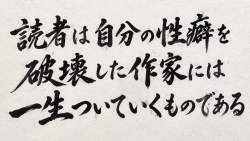 読者は自分の性癖を
破壊した作家には
一生ついていくものである